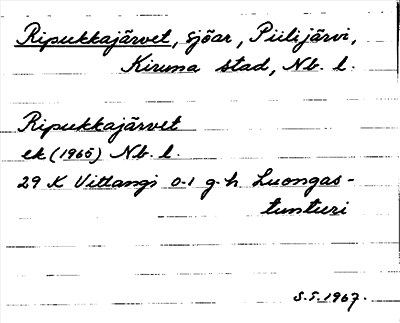 Ripukkajärvet, sjöar, Piilijärvi,
Kiruna stad, Nb. l.
Ripukkajärvet
ek (1965) Nb. l.
29 K Vittangi 0-1 g-h Luongas-
tunturi
S.S. 1967.